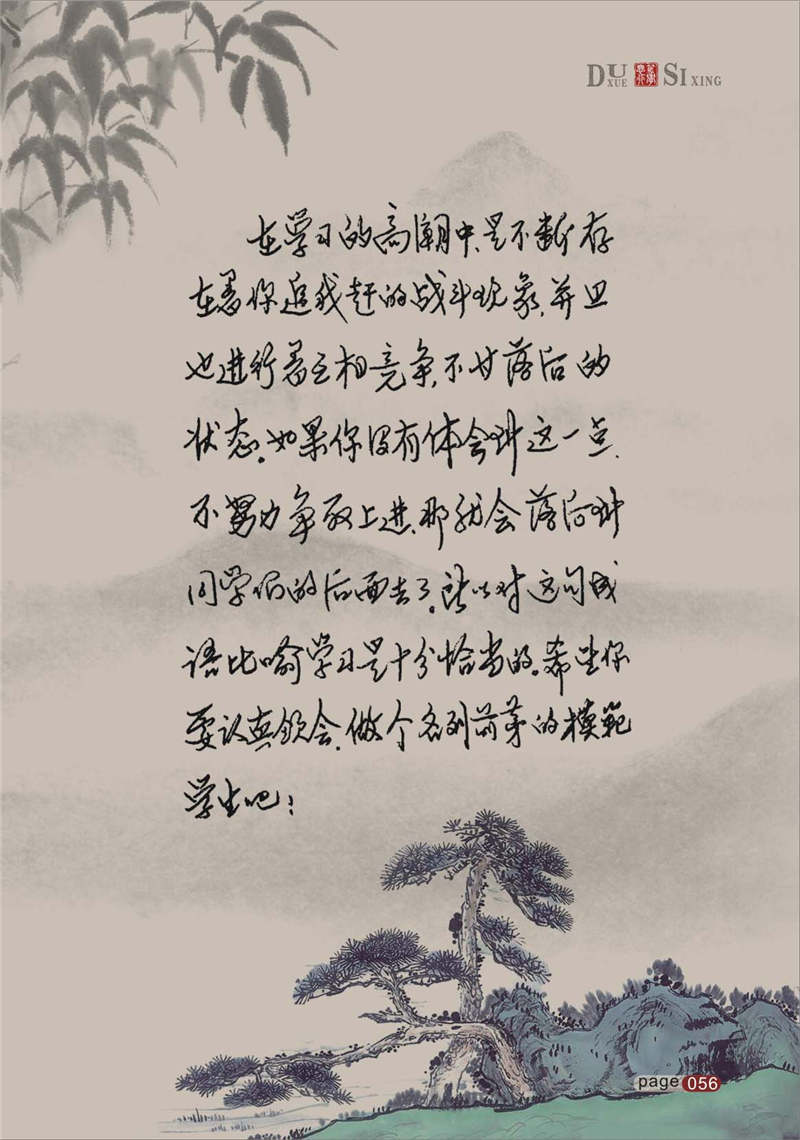 DU XUE SI XING
在学习的高潮中、是不断存
在着你追我赶的战斗现象，并且
也进行着互相竞争，不甘落后的
状态。如果你没有体会到这一点、
不努力争取上进，那就会落后到
同学们的后面去了。所以对这句成
语比喻学习是十分恰当的。希望你
要认真领会，做个名列前茅的模范
学生吧！
page 056